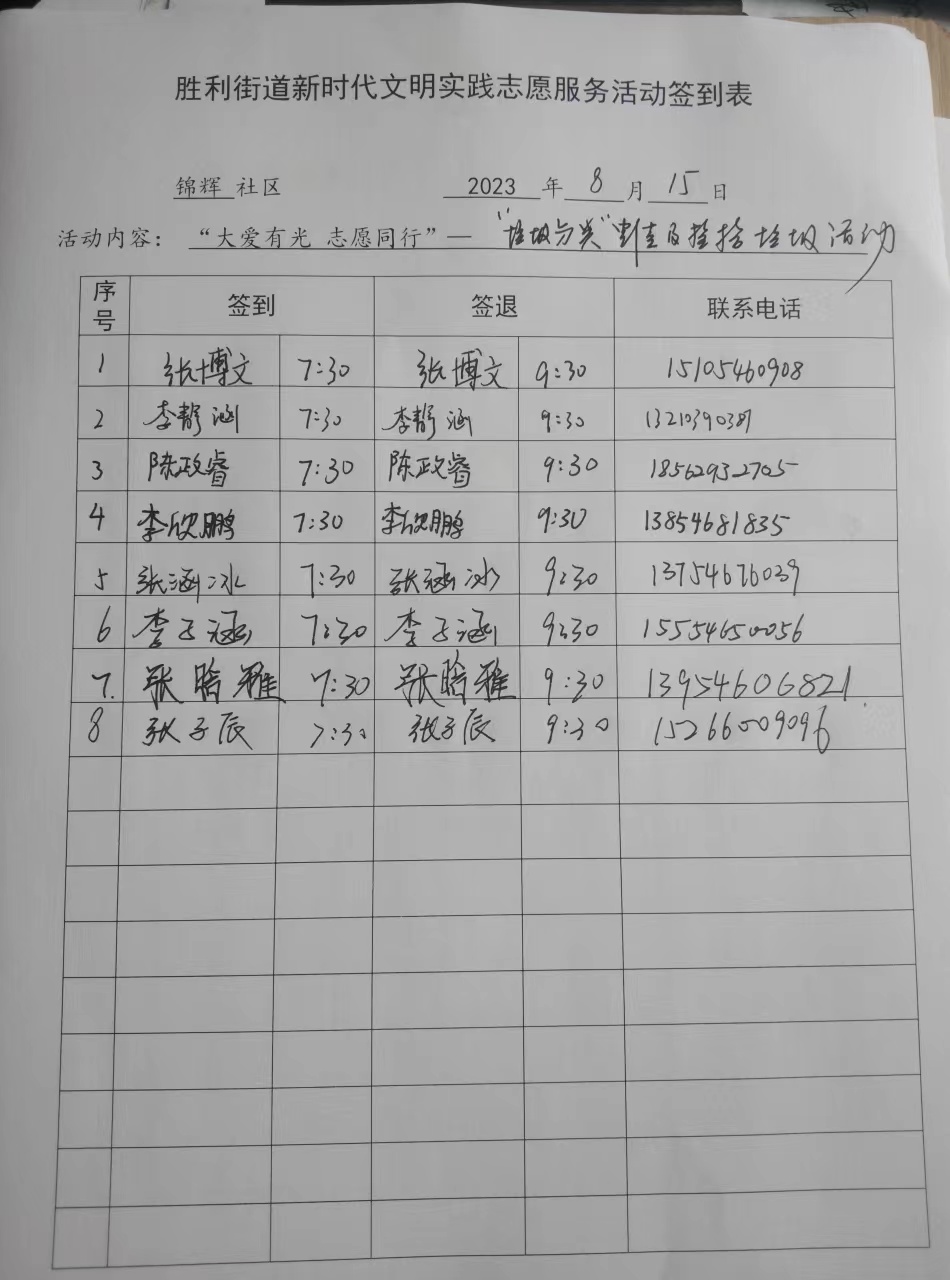 胜利街道新时代文明实践志愿服务活动签到表
锦辉 社区 2023 年 8 月 15 日
活动内容： “大爱有光 志愿同行”— “垃圾分类”宣传及捡拾垃圾活动
序号 签到 签退 联系电话
1 张博文 7:30 张博文 9:30 15105460908
2 李静涵 7:30 李静涵 9:30
3 陈政睿 7:30 陈政睿 9:30 18562932705
4 李欣鹏 7:30 李欣鹏 9:30 13854681835
5 张涵冰 7:30 张涵冰 9:30 13754676039
6 李子涵 7:30 李子涵 9:30 15554650056
7. 张晗雅 7:30 张晗雅 9:30 13954606821
8 张子辰 7:30 张子辰 9:30 15266009096